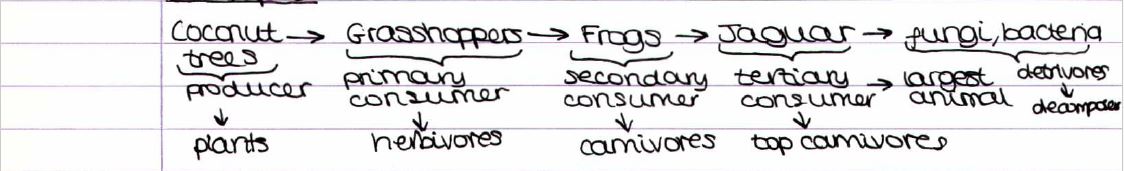 Coconut → Grasshoppers → Frogs → Jaguar → fungi, bacteria
trees
producer primary secondary tertiary → largest detrivores
consumer consumer consumer animal decomposer
plants herbivores carnivores top carnivores